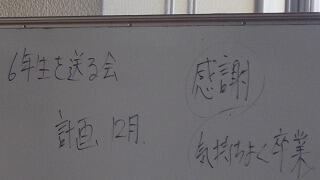 6年生を送る会
計画 12月.
感謝
気持ちよく卒業